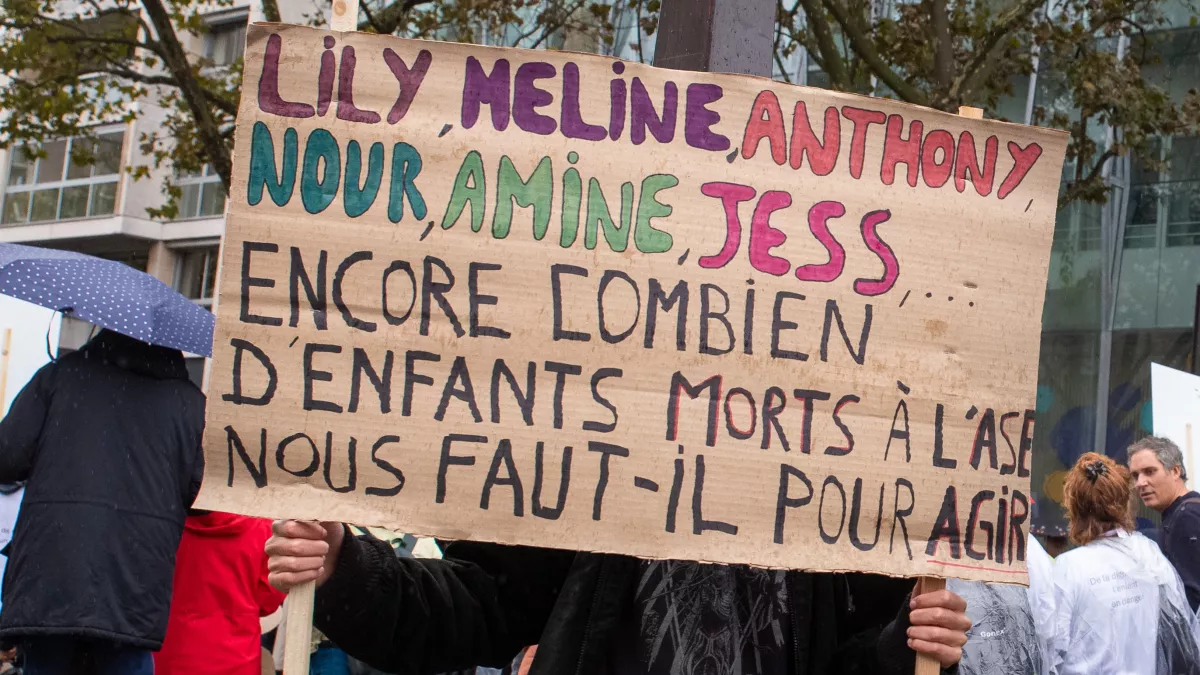 LILY, MELINE, ANTHONY,
NOUR, AMINE, JESS,....
ENCORE COMBIEN
D'ENFANTS MORTS À L'ASE
NOUS FAUT-IL POUR AGIR
De la dif
L'enfant
un dang